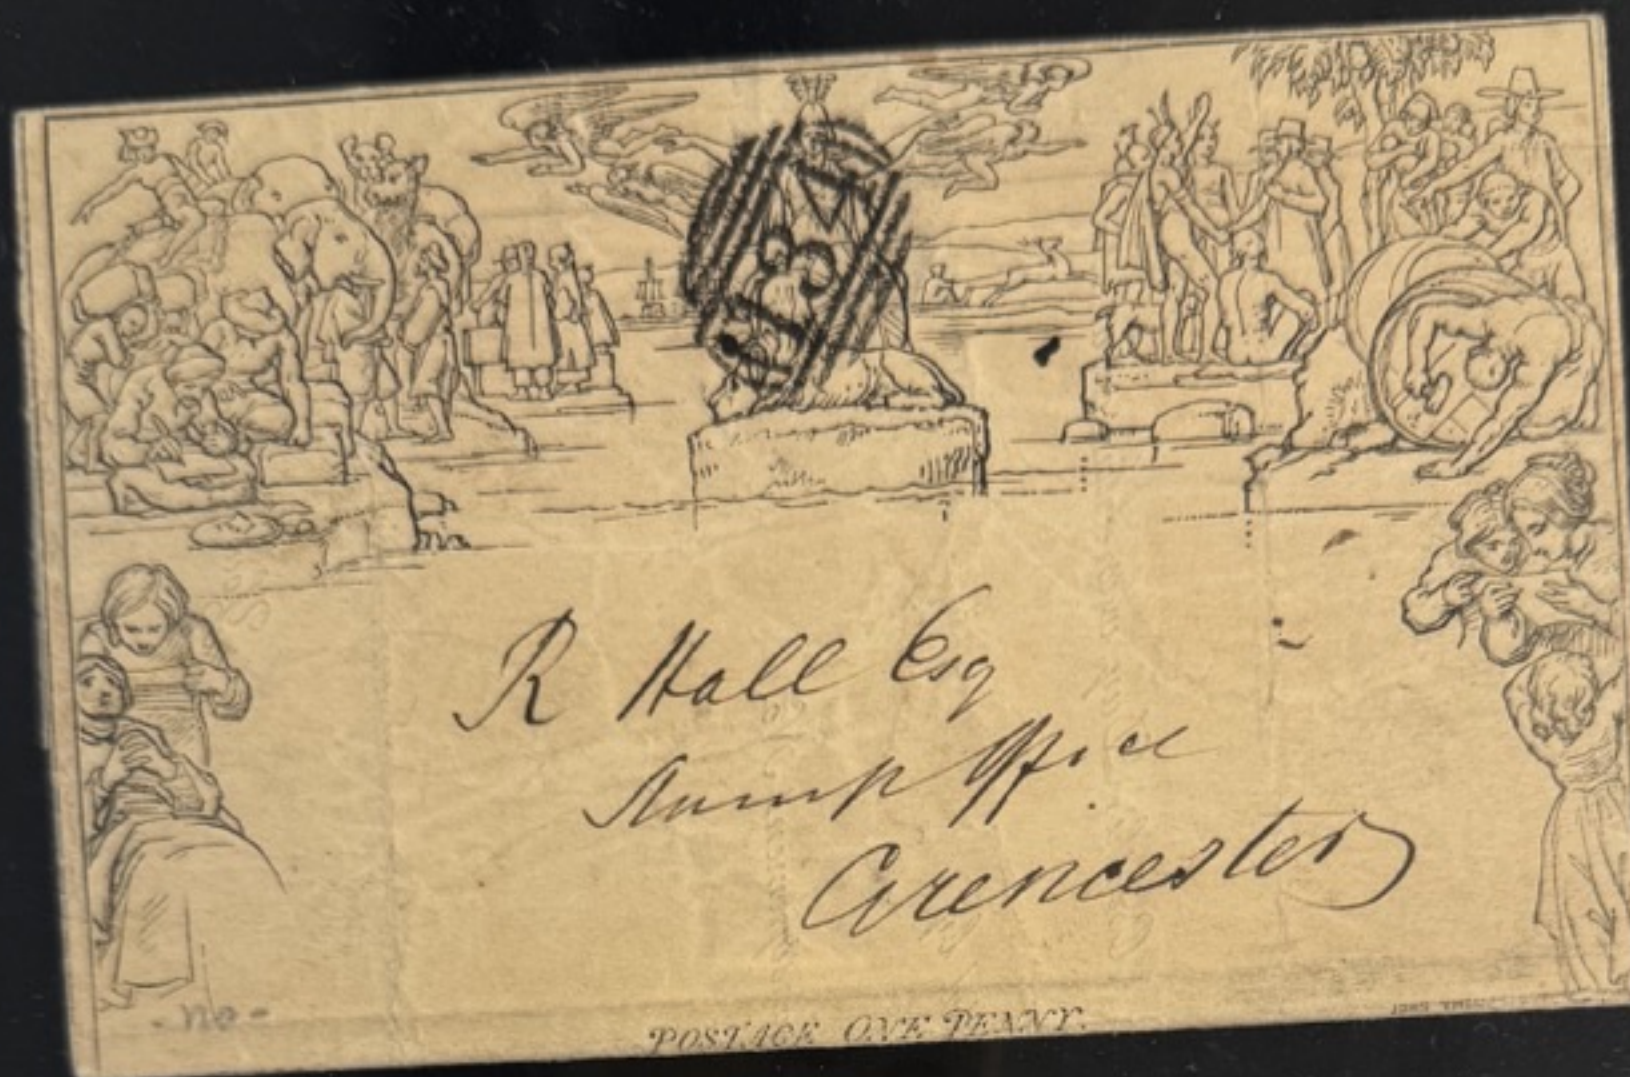 R Hall Esq
Stamp Office
Cirencester
POSTAGE ONE PENNY.